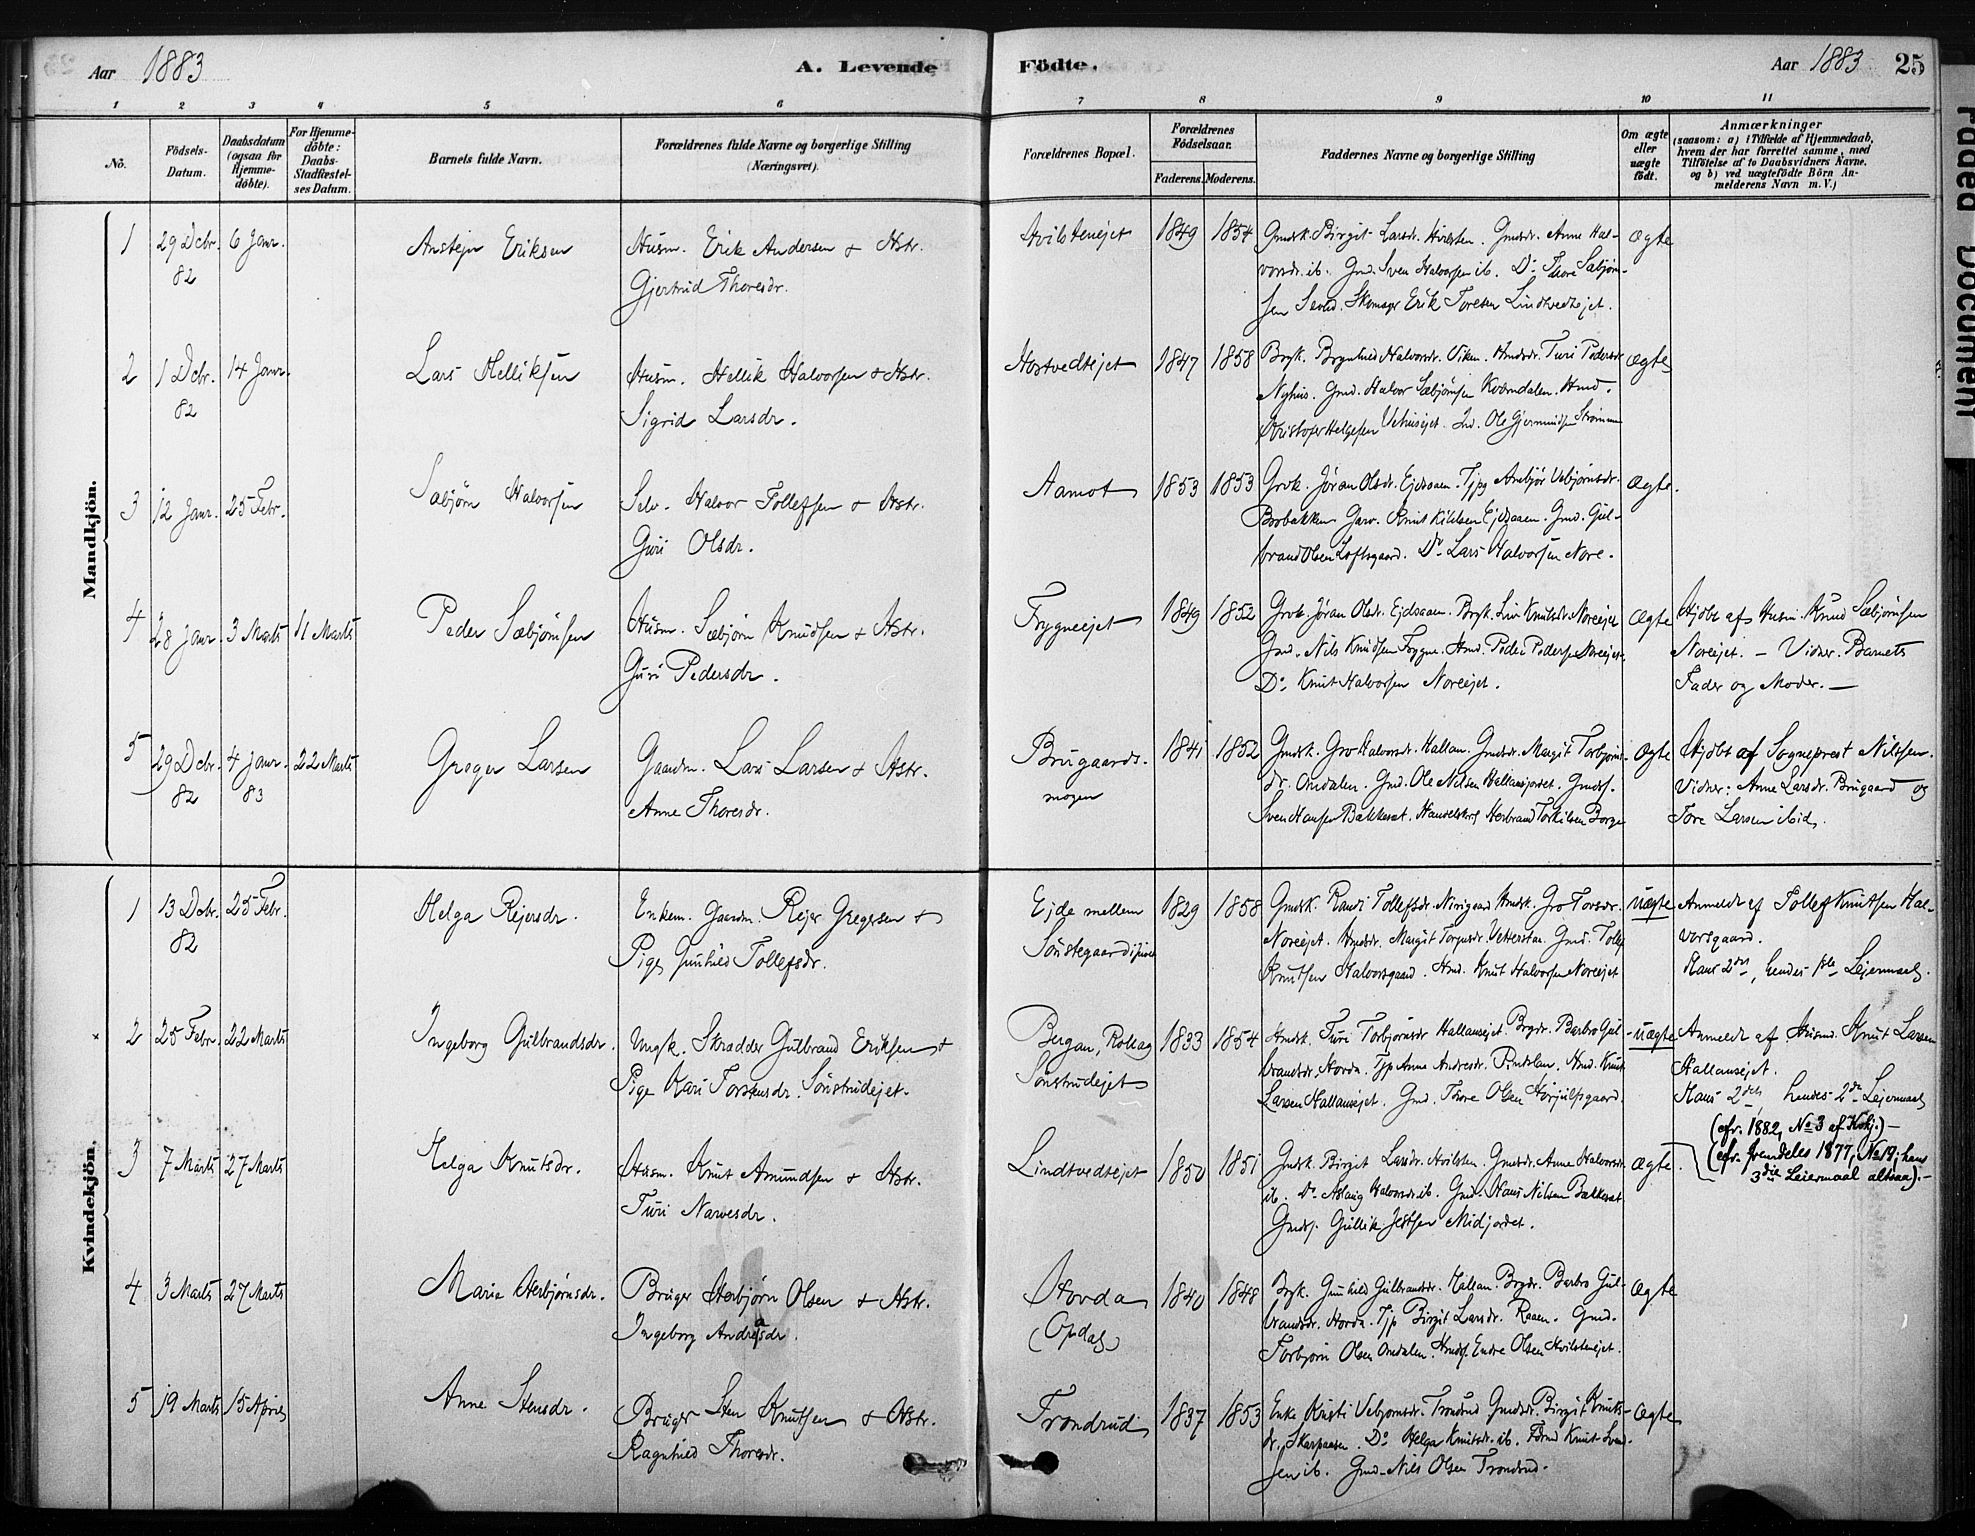 Aar 1883 A. Levende Födte. Aar 1883 25
1 2 3 4 5 6 7 8 9 10 11
No.
Födsels-
Datum.
Daabsdatum
(ogsaa for
Hjemme-
döbte).
For Hjemme-
döbte:
Daabs-
Stadfæstel-
ses Datum.
Barnets fulde Navn.
Forældrenes fulde Navne og borgerlige Stilling
(Næringsvei).
Forældrenes Bopæl.
Forældrenes
Födselsaar.
Faderens. Moderens.
Faddernes Navne og borgerlige Stilling
Om ægte
eller
uægte
födt.
Anmærkninger
(saasom: a) i Tilfælde af Hjemmedaab,
hvem der har forrettet samme, med
Tilföielse af to Daabsvidners Navne,
og b) ved uægtefödte Börn An-
melderens Navn m. V.)
Mandkjön.
1 29 Dcbr. 82 6 Janr.
Anstejn Eriksen
Husm. Erik Andersen & Hstr.
Gjertrud Thoresdr.
Hvilstenejet 1849 1854
Gmdsk. Birgit Larsdr. Hvilsten. Gmdsdr. Anne Hal-
vorsdr. ib. Gmd. Sven Halvorsen ib. Do Thore Sæbjørn-
sen Skomagr Erik Toresen Lindtvedtejet.
Ægte
2 1 Dcbr. 82 14 Janr.
Lars Helliksen
Husm. Hellik Halvorsen & Hstr.
Sigrid Larsdr.
Hostvedtejet 1847 1858
Brgk. Brynhild Halvorsdr. Viken. Hmdsdr. Turi Pedersdr
Nyhus. Gmd. Halvor Sæbjørnsen Kverndalen. Hmd.
Kristofer Helgesen Vehusejet. Ole Gjermundsen Strømmen
Ægte
3 12 Janr. 25 Febr.
Sæbjørn Halvorsen
Selv. Halvor Tollefsen & Hstr.
Guri Olsdr.
Aamot 1853 1853
Grvk. Jøran Olsdr. Ejdsaaen. Tjpg Ambjør Vebjørnsdr.
Brobakken Garv. Knut Kittilsen Ejdsaaen. Gmd. Gul-
brand Olsen Loftsgaard. Do Lars Halvorsen Nore.
Ægte.
4 28 Janr. 3 Marts 11 Marts
Peder Sæbjørnsen
Husm. Sæbjørn Knudsen & Hstr.
Guri Pedersdr.
Frygneejet 1849 1852
Grvk. Jøran Olsdr. Ejdsaaen. Brgk. Liv Knutsdr. Noreejet
Gmd. Nils Knudsen Frygne. Hmd. Peder Pedersen Noreejet.
Do Knut Halvorsen Noreejet.
Ægte
Hjdbt af Husm. Knud Sæbjørnsen
Noreejet. – Vidner. Barnets
Fader og Moder. –
5 29 Dcbr. 82 4 Janr. 83 22 Marts
Greger Larsen
Gaardm. Lars Larsen & Hstr.
Anne Thoresdr.
Brugaards-
mogen 1841 1852
Gmdsk. Gro Halvorsdr. Hallan. Gmdsdr. Margit Torbjørns-
dr. Omdalen. Gmd. Ole Nilsen Hallansjordet. Gmdss.
Sven Hansen Bakkerat. Handelskrl Herbrand Torkilsen Borge
Ægte
Hjdbt af Sogneprest Nilssen.
Vidner: Anne Larsdr. Brugaard og
Tore Larsen ibid.
Kvindekjön.
1 13 Dcbr. 82 25 Febr.
Helga Rejersdr.
Enkem. Gaardm. Rejer Gregersen &
Pige Gunhild Tollefsdr.
Ejde mellem
Sønstegaard 1829 1858
Gmdsk. Randi Tollefsdr. Hmdsk. Gro Torsdr.
Noreejet. Hmdsdr. Margit Torgusdr. Gmd. Tollef
Knutsen Halvorsgaard. Hmd. Knut Halvorsen Noreejet
uægte
Anmeldt af Tollef Knutsen Hal-
vorsgaard.
Hans 2det, hendes 1ste Lejermaal.
2 25 Febr. 22 Marts
Ingeborg Gulbrandsdr.
Ungk. Skrædder Gulbrand Eriksen &
Pige Kari Torstensdr. Sønstrudejet.
Bergan, Rollag
Sønstrudejet 1833 1854
Hmdsk. Turi Torbjørnsdr Hallansejet. Brgdr. Barbro Gul-
brandsdr. Hovda. Tjp Anne Andresdr. Hmd. Knut
Larsen Hallansejet. Gmd. Thore Olsen Horjulsgaard.
uægte
Anmeldt af Husmd. Knut Larsen
Hallansejet.
Hans 2det, hendes 2det Lejermaal
(cfr. 1882, No 3 af Kvkj.) –
(cfr. fremdeles 1877, No 19, hans
3die Leiermaal altsaa). –
3 7 Marts 27 Marts
Helga Knutsdr.
Husm. Knut Amundsen & Hstr.
Turi Narvesdr.
Lindtvedtejet 1850 1851
Gmdsk. Birgit Larsdr. Hvilsten. Gmdsdr. Anne Halvorsdr
ib. Do Aslaug Halvorsdr. ib. Gmd. Hans Nilsen Bakkerat
Gmdss. Gullik Midjordet.
Ægte.
4 3 Marts 27 Marts
Marie Herbjørnsdr.
Bruger Herbjørn Olsen & Hstr.
Ingeborg Andreasdr.
Hovda
(Opdal) 1840 1848
Brgk. Gunhild Gulbrandsdr. Hallan. Brgdr. Barbro Gul-
brandsdr. Hovda. Tjp Birgit Larsdr. Raaen. Gmd.
Torbjørn Olsen Omdalen. Hmdss. Endre Olsen Hvilstenejet.
Ægte
5 19 Marts 15 April
Anne Stensdr.
Bruger Sten Knutsen & Hstr.
Ragnhild Thoresdr.
Trondrud 1837 1853
Enke Kristi Vebjørnsdr. Trondrud Gmdsdr. Birgit Knuts-
dr. Skarpaasen. Do Helga Knutsdr. ib. Knut Svend-
sen ib. Gmd. Nils Olsen Trondrud.
Ægte
Faded Document